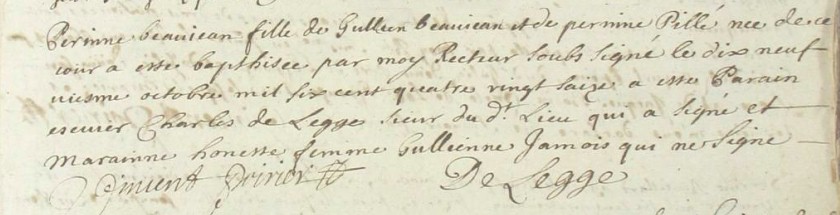 Perinne beauiean fille de Gullien beauiean et de perinne Pillé nee de ce
iour a este bapthisee par moy Recteur soubs signé le dix neuf
uiesme octobre mil six cent quatre vingt saize a este Parain
escuier Charles de Legge sieur du dt. Lieu qui a signe et
Marainne honeste femme Gullienne Jamois qui ne signe
De Legge